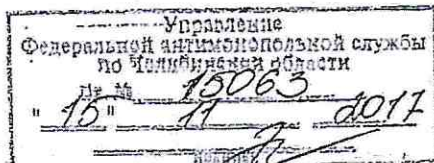 Управление
Федеральной антимонопольной службы
по Челябинской области
№ 15063
"15" 11 2017